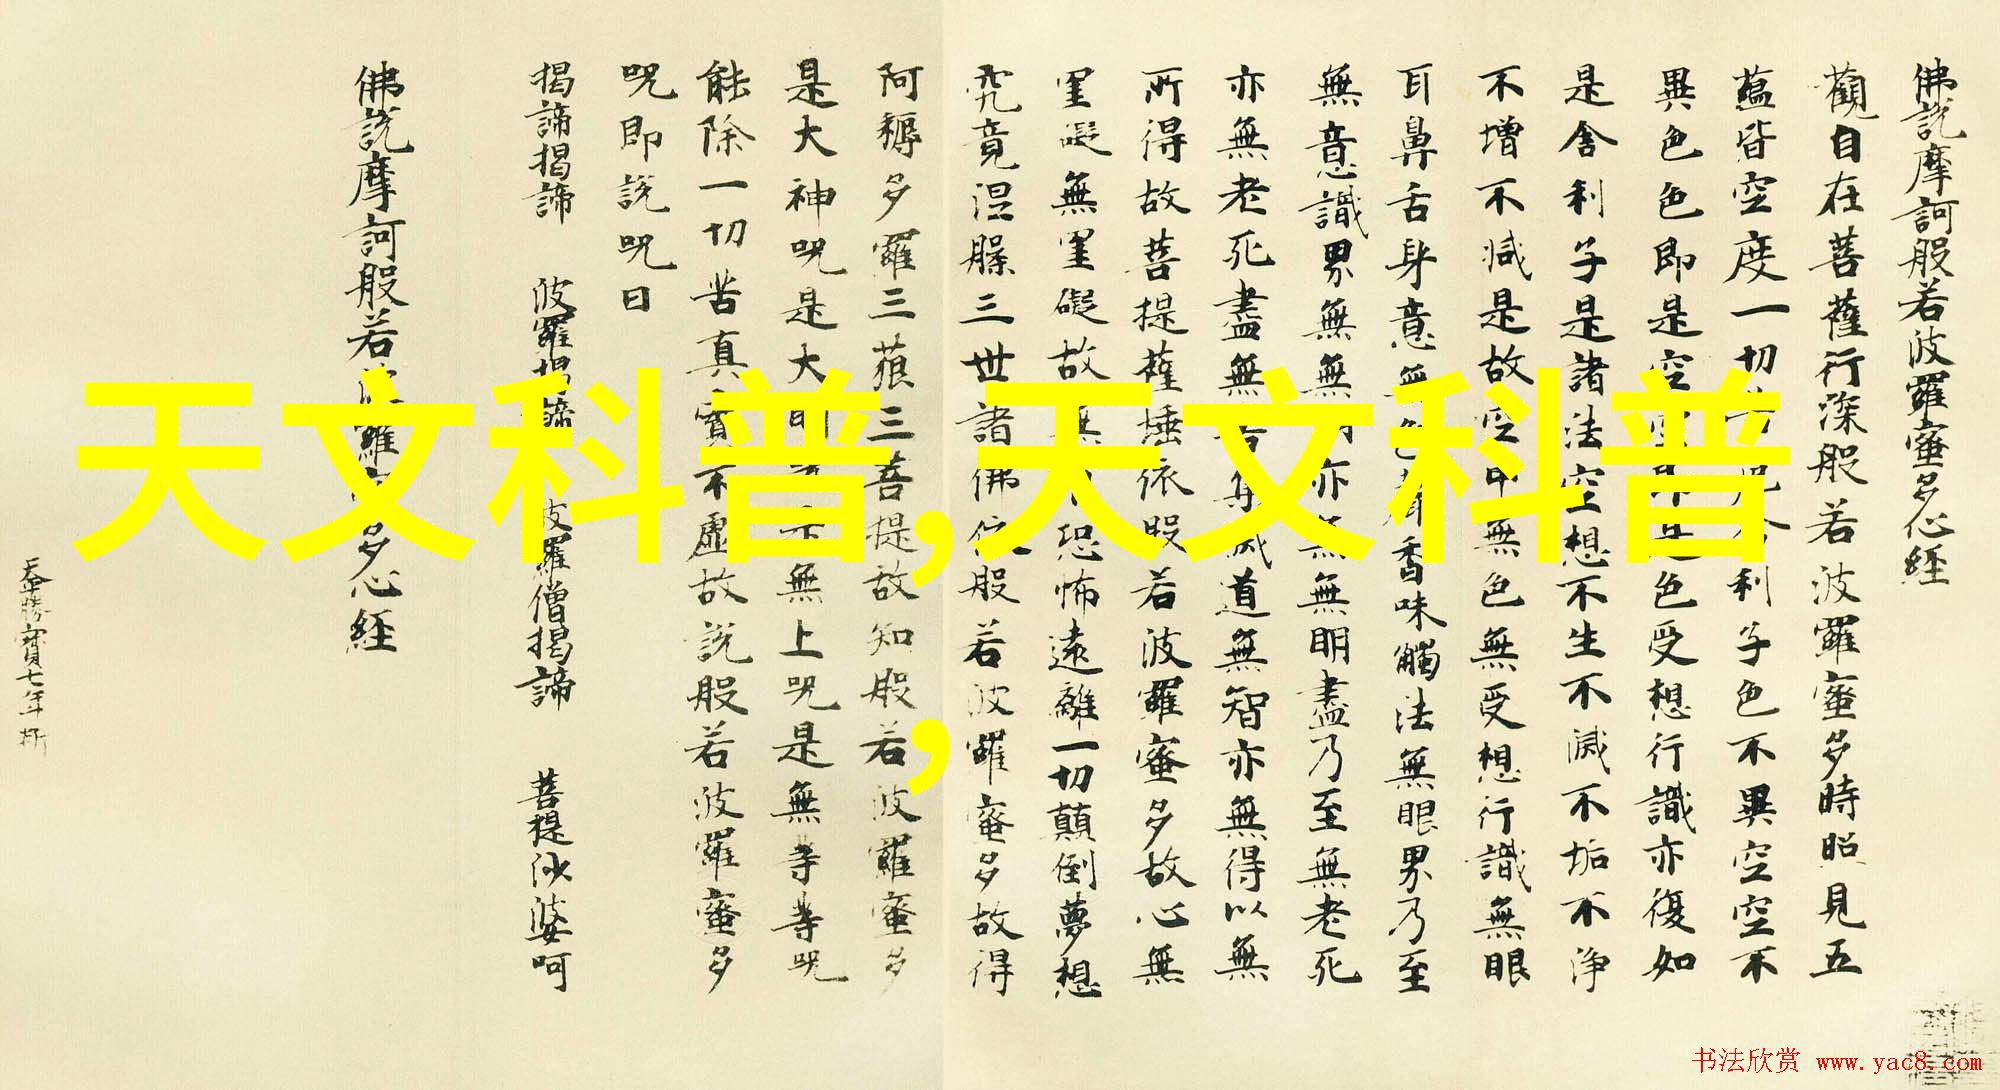 佛說摩訶般若波羅蜜多心経
觀自在菩薩行深般若波羅蜜多時照見五
蘊皆空度一切利子色不異空空不
異色色即是空色受想行識亦復如
是舍利子是諸法空想不生不滅不垢不淨
不增不減是故空中無色無受想行識無眼
耳鼻舌身意無色聲香味觸法無眼界乃至
無意識界無無明亦無無明盡乃至無老死
亦無老死盡無苦集滅道無智亦無得以無
所得故菩提薩埵依般若波羅蜜多故心無
罣礙無罣礙故無恐怖遠離一切顛倒夢想
究竟涅槃三世諸佛依般若波羅蜜多故得
阿耨多羅三藐三菩提故知般若波羅蜜多
是大神咒是大明無上咒是無等等咒
能除一切苦真實不虛故說般若波羅蜜多
咒即說咒曰
揭諦揭諦 波羅揭諦 波羅僧揭諦 菩提沙婆呵
佛說摩訶般若波羅多心経
七年
天文科普,天文科普
,
书法欣赏 www.yac8.com